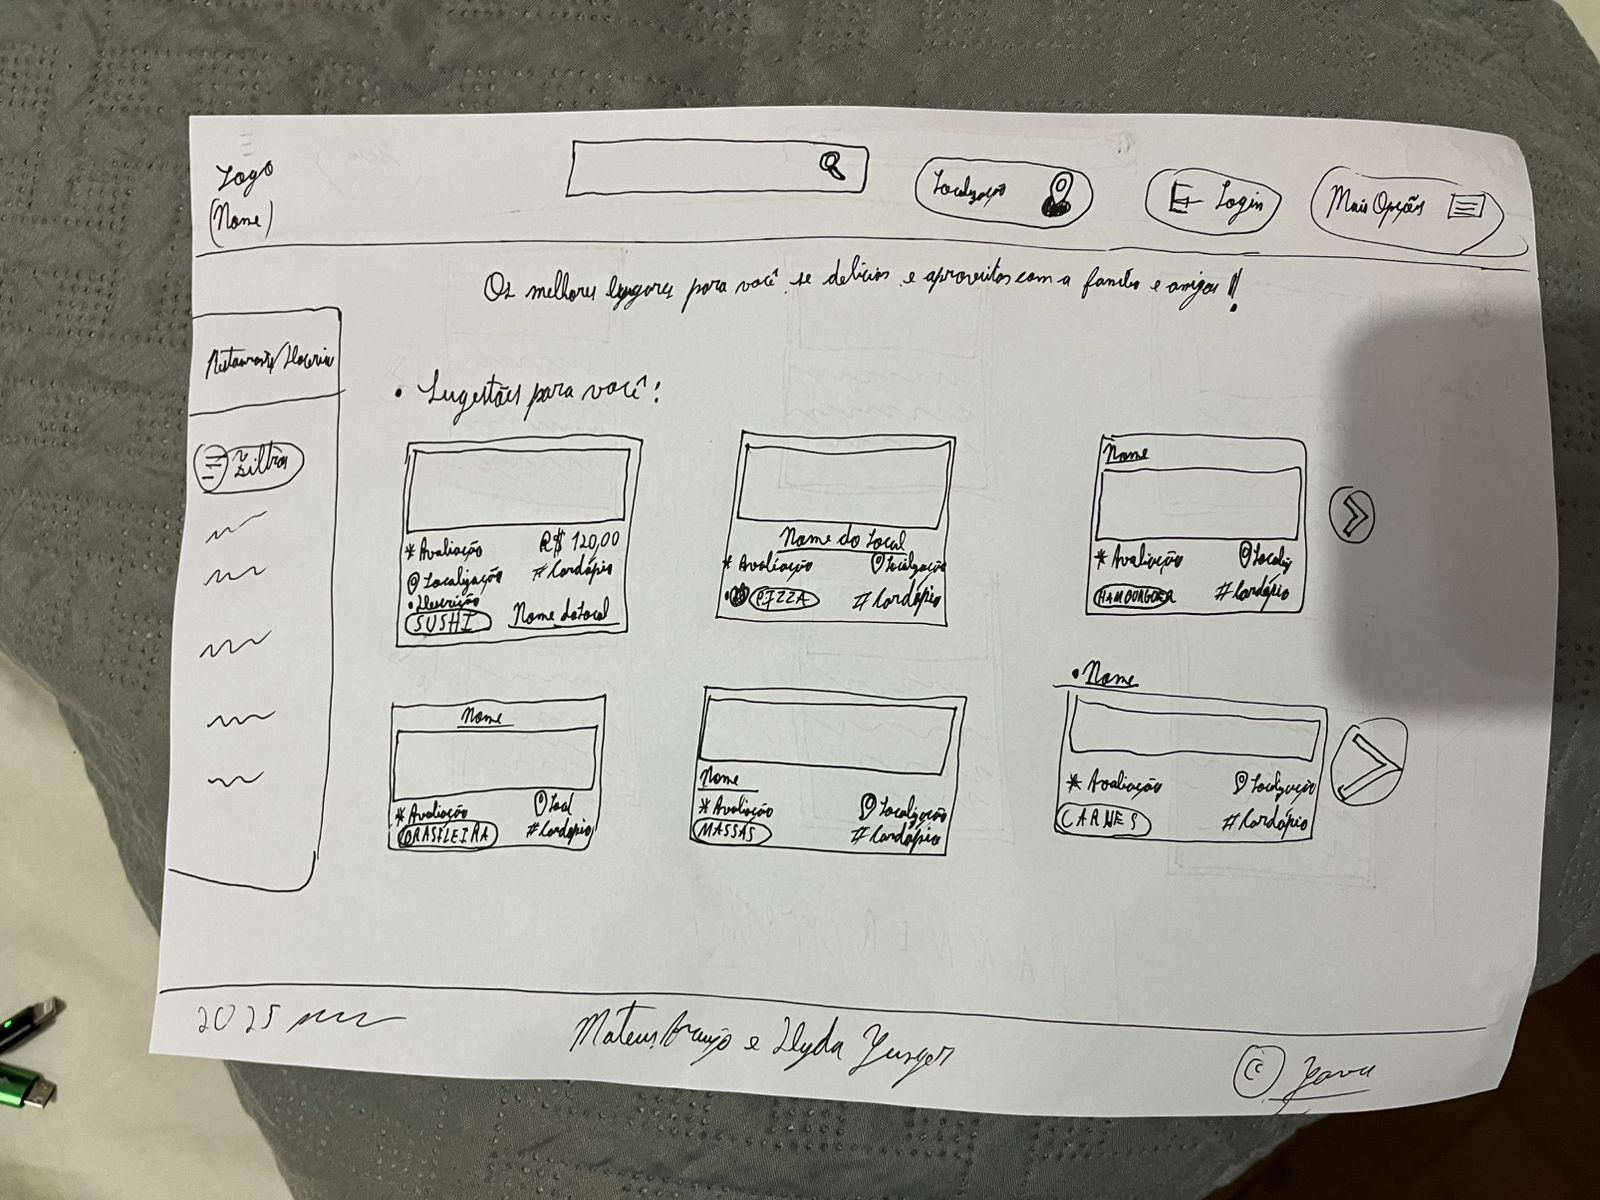 Logo
(Nome)
Localização
Login
Mais Opções
Os melhores lugares para você se deliciar e aproveitar com a família e amigos!
Restaurante/
Filtros
• Sugestões para você!
* Avaliação R$ 120,00
Localização # Cardápio
• Descrição
SUSHI Nome do Local
Nome do Local
* Avaliação Localização
PIZZA # Cardápio
Nome
* Avaliação Localiz
HAMBURGUER # Cardápio
Nome
* Avaliação Local
BRASILEIRA # Cardápio
Nome
* Avaliação Localização
MASSAS # Cardápio
• Nome
* Avaliação Localização
CARNES # Cardápio
2025
Mateus Araujo e
©